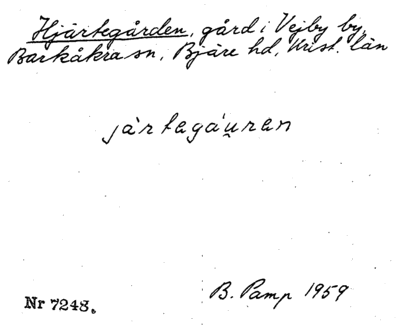 Hjärtegården, gård i Vejby by,
Barkåkra sn, Bjäre hd, Krist. län
jàrtegáu̯ren
B. Pamp 1959
Nr 7248.